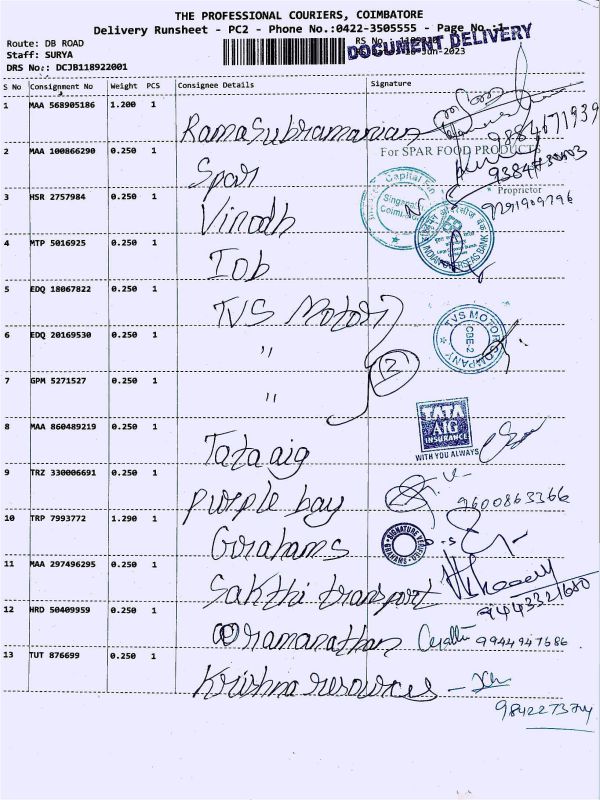 THE PROFESSIONAL COURIERS, COIMBATORE
Delivery Runsheet - PC2 - Phone No.:0422-3505555 - Page No.:1
Route: DB ROAD
RS No.
DOCUMENT DELIVERY
Staff: SURYA
-Jun-2023
DRS No:: DCJB118922001
S No Consignment No Weight PCS Consignee Details Signature
1 MAA 568905186 1.200 1 Ramasubramanian
9884671939
2 MAA 100866290 0.250 1 Spar
For SPAR FOOD PRODUCTS
Proprietor
3 HSR 2757984 0.250 1 Vinodh
Capital
Singanallur
4 MTP 5016925 0.250 1 Iob
INDIAN OVERSEAS BANK
5 EDQ 18067822 0.250 1 TVS Motor
TVS MOTOR COMPANY
CBE-2
6 EDQ 20169530 0.250 1 "
3
7 GPM 5271527 0.250 1 "
8 MAA 860489219 0.250 1 Tata aig
TATA
AIG
INSURANCE
WITH YOU ALWAYS
9 TRZ 330006691 0.250 1 purple bay
9600863366
10 TRP 7993772 1.290 1 Grahams
11 MAA 297496295 0.250 1 Sakthi transport
9443321680
12 HRD 50409959 0.250 1 ramanathan
9944947686
13 TUT 876699 0.250 1 Krishna resources